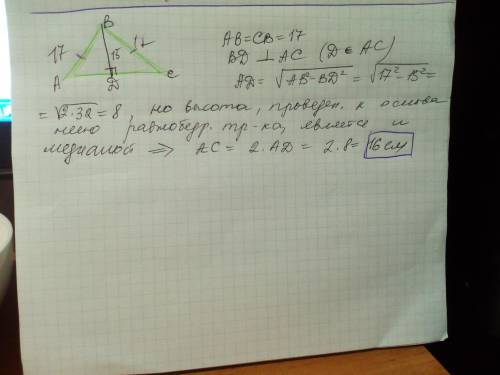 B
17
15
A
D
C
AB=CB=17
BD ⊥ AC (D ∈ AC)
AD= √AB²-BD² = √17²-15² =
= √2·32 = 8, но высота, проведен. к основа
нию равнобедр. тр-ка, является и
медианой ⇒ AC = 2·AD = 2·8= 16 см